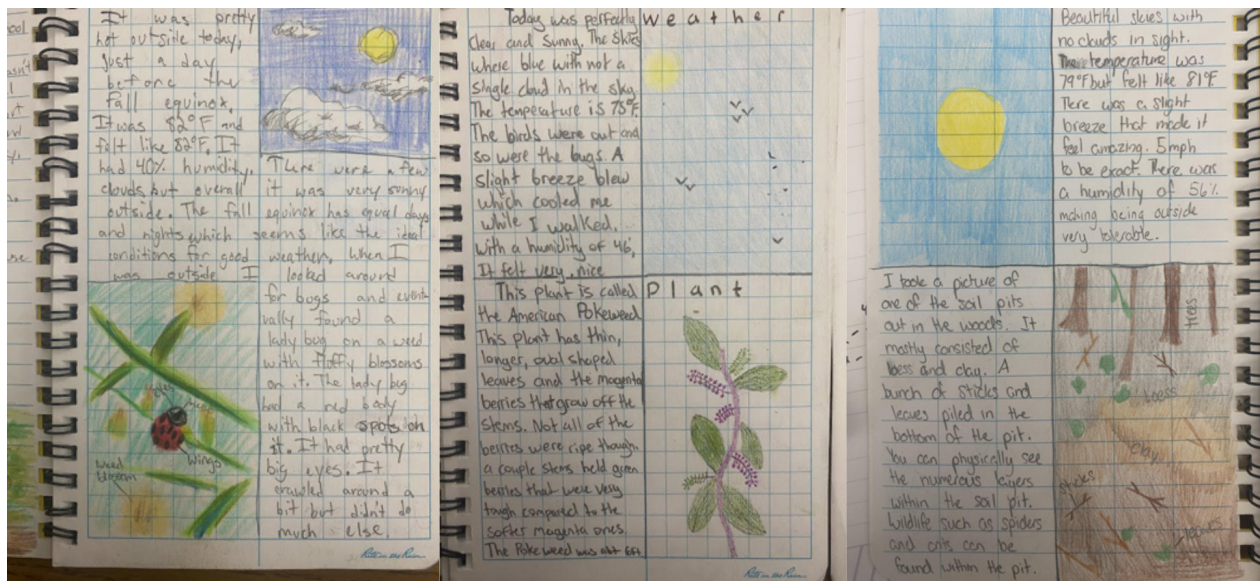 It was pretty
hot outside today,
just a day
before the
fall equinox,
It was 82°F and
felt like 82°F, It
had 40% humidity,
clouds, but overall
outside. The fall
and nights which
conditions for good
was outside I
There were a few
it was very sunny
equinox has equal days
seems like the ideal
weather, When I
looked around
for bugs and event-
ually found a
lady bug on a weed
with fluffy blossoms
on it. The lady bug
had a red body
with black spots on
it. It had pretty
big eyes. It
crawled around a
bit but didn't do
much else.
eyes
Wings
Weed
blossom
Rite in the Rain
Today was perfectly
Clear and Sunny. The skies
where blue with not a
single cloud in the sky
The temperature is 75°F.
The birds were out and
so were the bugs. A
slight breeze blew
which cooled me
while I walked,
with a humidity of 46%,
It felt very nice
weather
This plant is called
the American Pokeweed
This plant has thin,
longer, oval shaped
leaves and the magenta
berries that grow off the
stems. Not all of the
berries were ripe though,
a couple stems held green
berries that were very
tough compared to the
softer magenta ones.
The Pokeweed was abt 6ft
Plant
Rite in the Rain
Beautiful skies with
no clouds in sight.
The temperature was
79°F but felt like 81°F
There was a slight
breeze that made it
feel amazing. 5mph
to be exact. There was
a humidity of 56%
making being outside
very tolerable.
I took a picture of
one of the soil pits
out in the woods. It
mostly consisted of
loess and clay. A
bunch of sticks and
leaves piled in the
bottom of the pit.
You can physically see
the numerous layers
within the soil pit.
Wildlife such as spiders
and ants can be
found within the pit.
trees
loess
clay
sticks
leaves